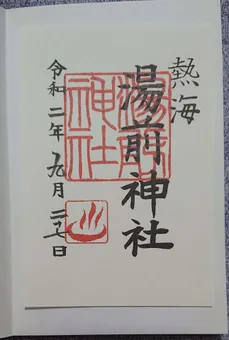 熱海
湯前神社
湯前
神社
令和二年九月二七日